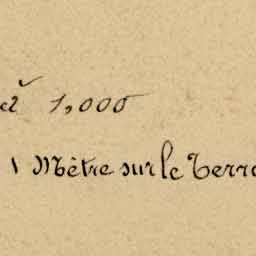 à 1,000
1 Mètre sur le Terr